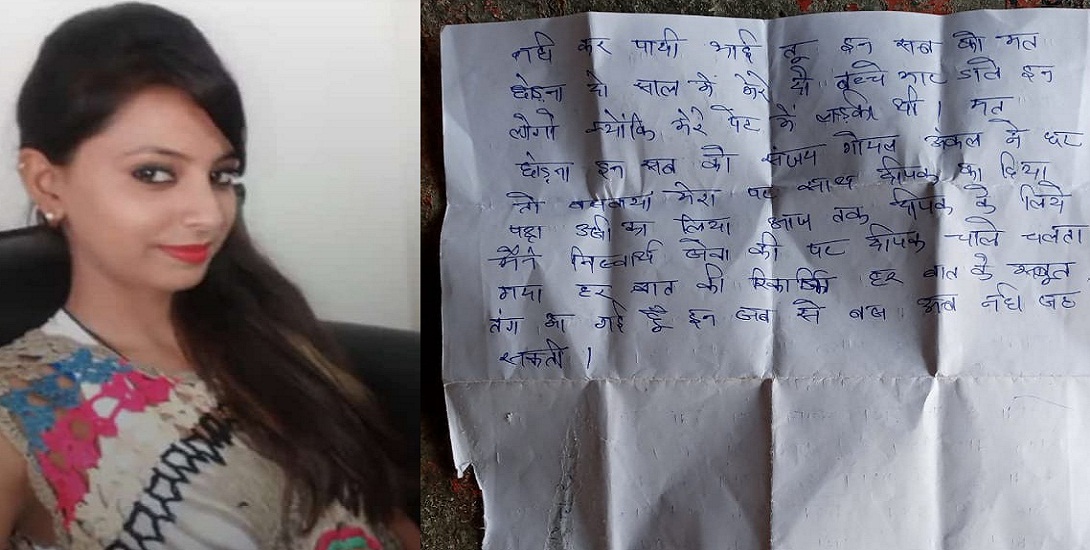 नही कर पायी भाई तू इन सब को मत
छोड़ना दो साल में मेरे दो बच्चे मार डाले इन
लोगो क्योंकि मेरे पेट में लड़की थी । मत
छोड़ना इन सब को संजय गोयल अंकल ने घर
तो मेरा पर साथ दीपक का दिया
पक्ष उसी का लिया आज तक दीपक के लिये
मैंने निस्वार्थ सेवा की पर दीपक चाले चलता
गया हर बात की हर बात के सबूत
तंग आ गई हूँ इन सब से बस अब नही सह
सकती ।